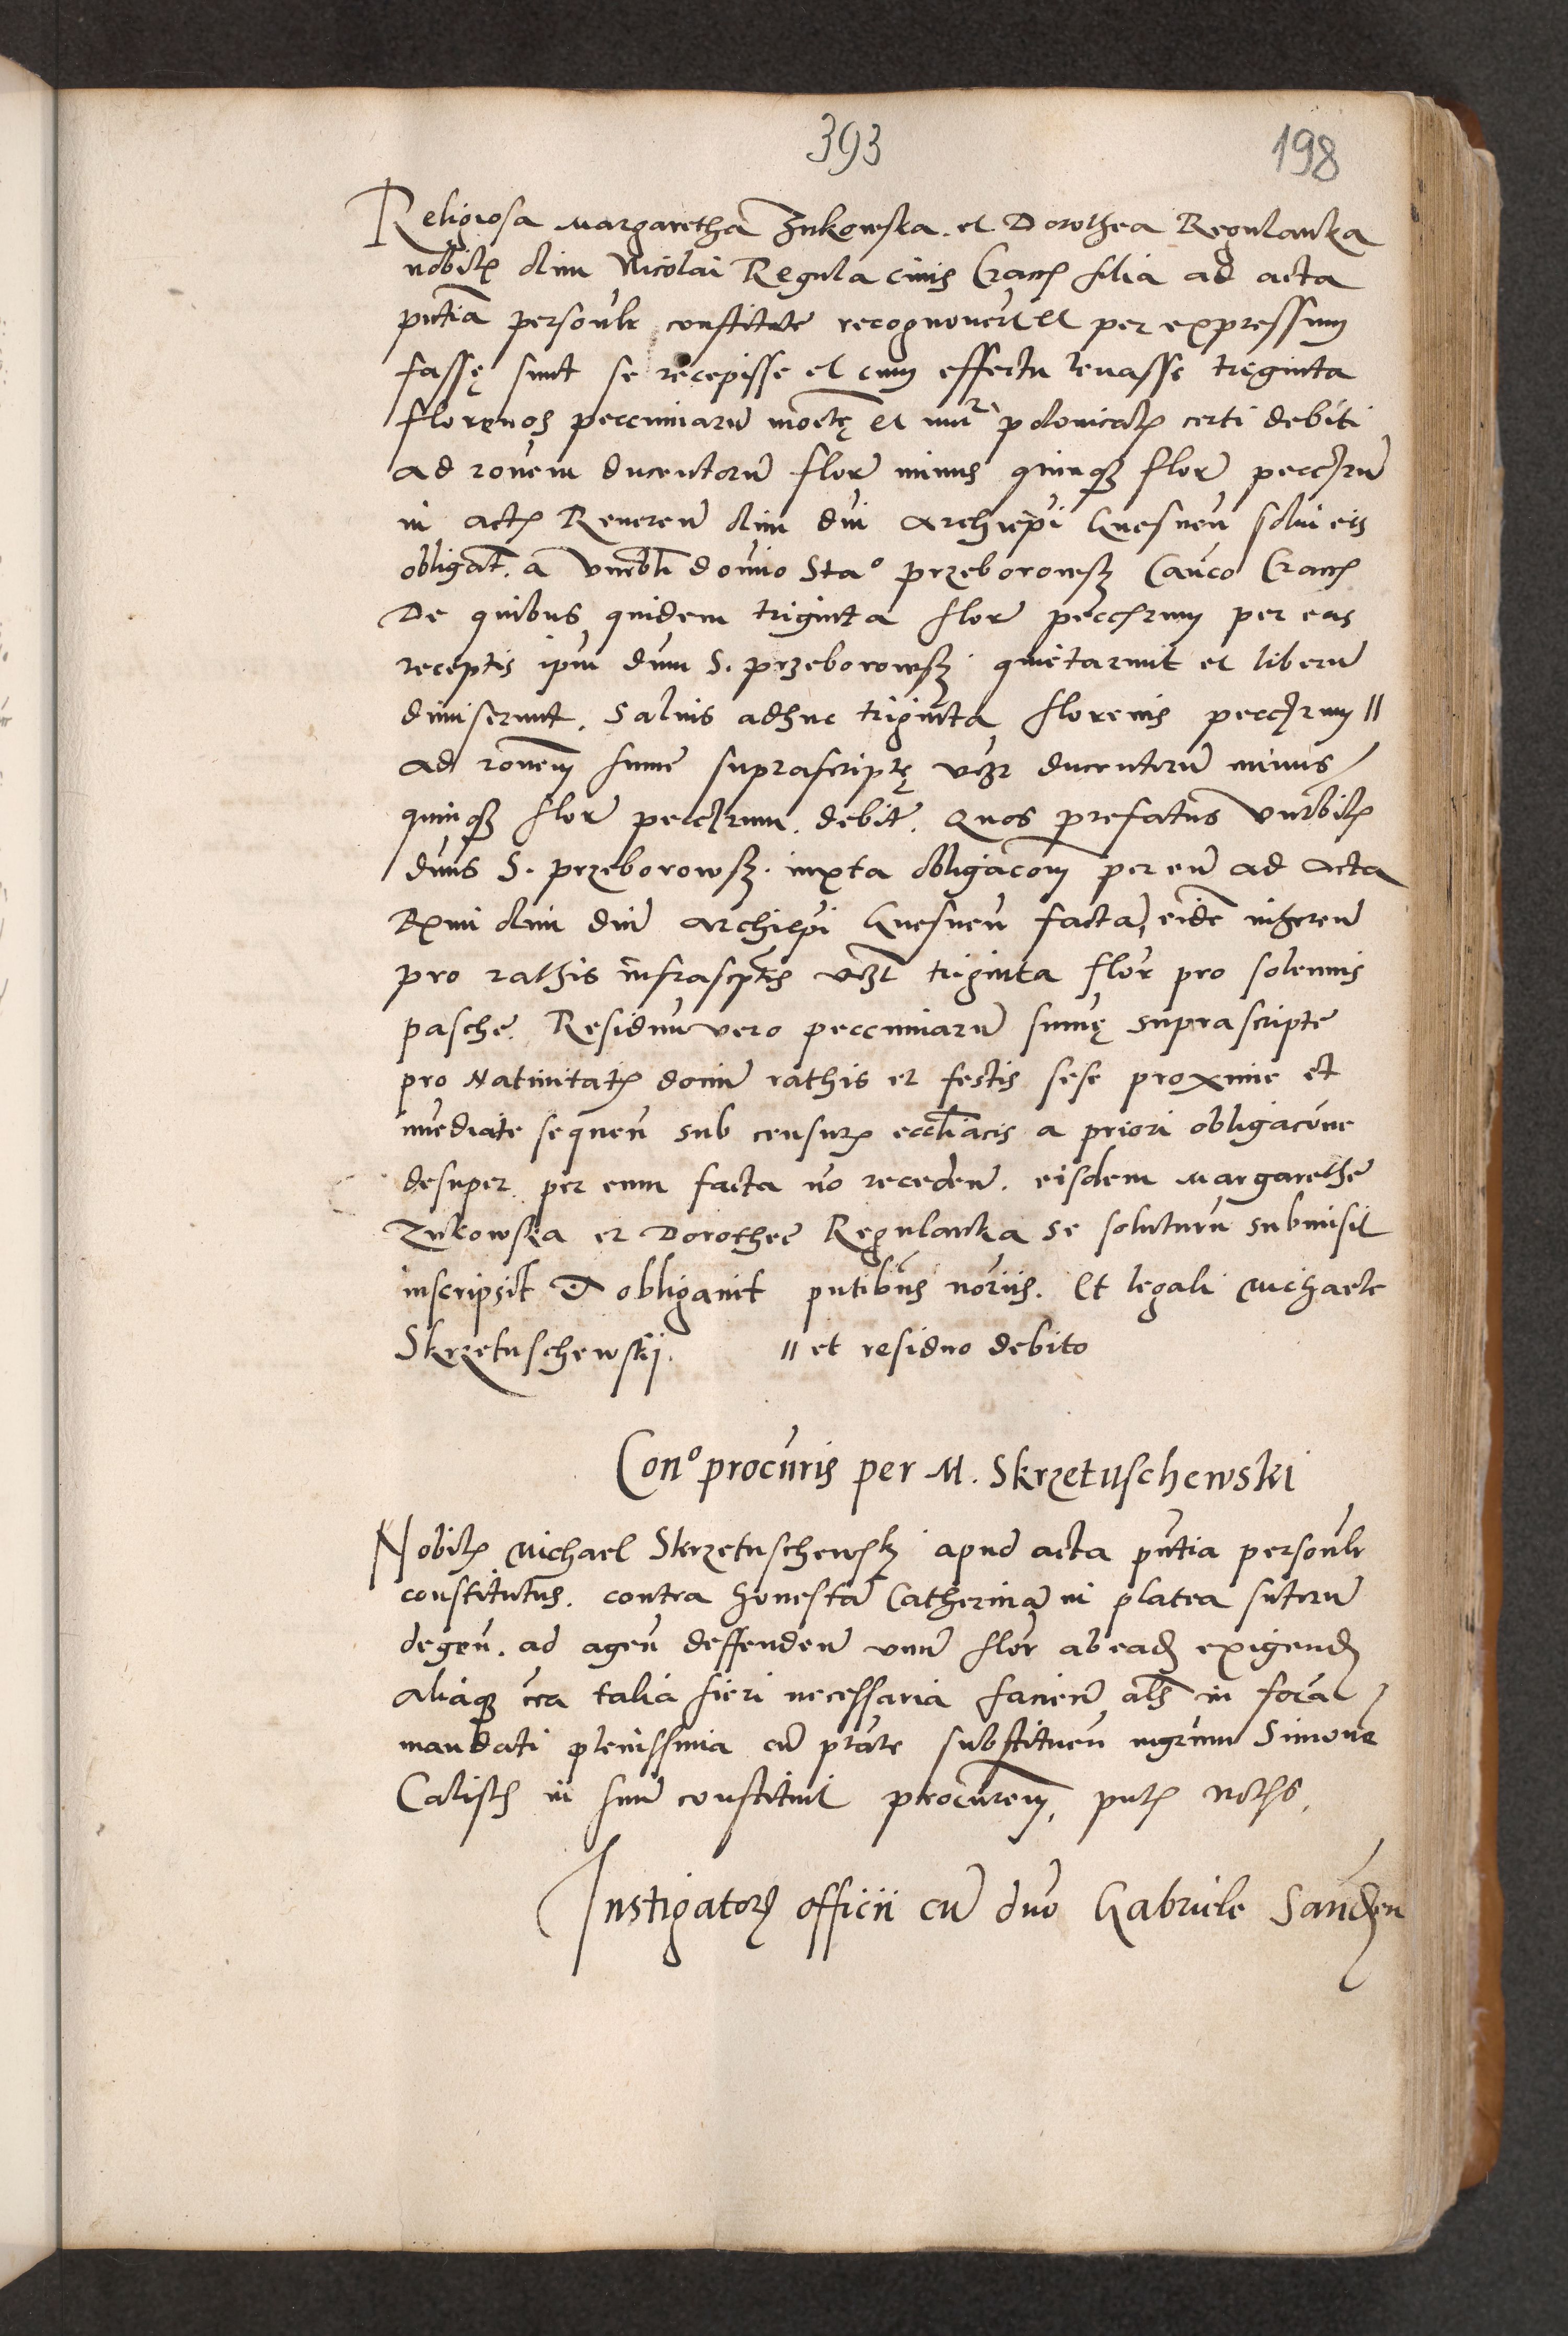 393
198
Religiosa Margaretha Zukowska. et Dorothea Regulanka
nobilis olim Nicolai Regula civis Crac filia ad acta
pntia personlr constitute recognoverūt et per expressum
fassę sunt se recepisse et cum effectu levasse triginta
florenos peccuniarū monetę et nūri polonicalis certi debiti
ad ronem ducentorū flor minus quinqz flor pecciarū
in actis Reveren olim dni Archiepi Gnesnen solui eis
obligat. a Venerbli domino Stao przeborowsky Canco Crac
De quibus quidem triginta flor pecciarum per eas
receptis ipm dnm S. przeborowsky quietarunt et liberū
dimiserunt. Salvis adhuc triginta florenis pecciarum ||
ad ronem summe suprascriptę vczt ducentorū minus
quinqz flor pecciarum. debite. Quos prefatus Venerbilis
dnus S. przeborowsky. iuxta obligacom per eū ad Acta
Rxmi olim dni Archiepi Gnesnen facta, eidē inheren
pro rathis infrascptis vczt triginta flor pro solennis
pasche. Residuū vero peccuniarū sumę suprascripte
pro Nativitatis domini rathis et festis sese proxime et
imediate sequen sub censuris eccliacis a priori obligacōne
desuper per eum facta nō receden. eisdem Margarethe
Zukowska et Dorothee Regulanka se soluturū submisit
inscripsit et obligavit pntibus noriis. Et legali Michaele
Skrzetuschewskij. || et residuo debito
Cono procuris per M. Skrzetuschewski
Nobilis Michael Skrzetuschewsky apud acta pntia personlr
constitutus. contra honestā Catherinā in platea sutorū
degen. ad agen deffenden unū flor ab eadē exigendū
aliaqz cca talia fieri necessaria facien als in forma
mandati plenissima cū ptate substituen mgrum Simonē
Calisch in suū constituit procurem, pntis noths.
Instigatoris officii cū dno Gabriele Sandzen